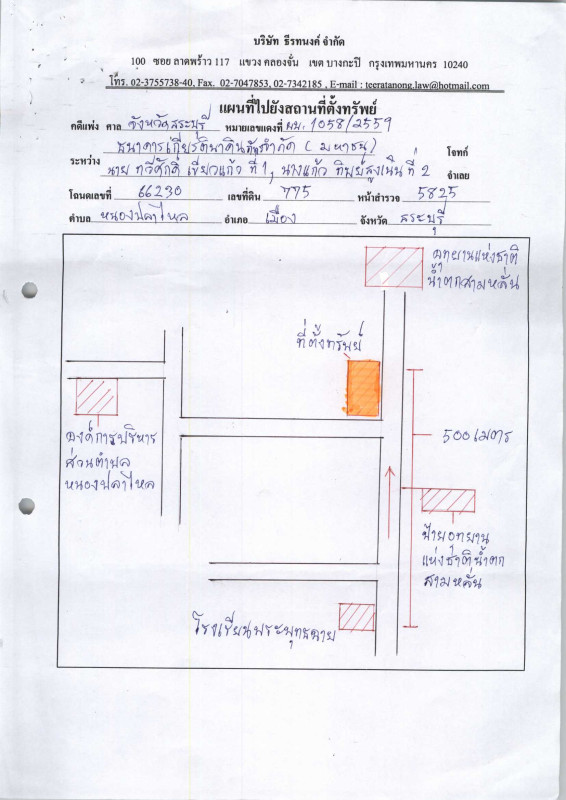 บริษัท ธีรทนงค์ จำกัด
100 ซอย ลาดพร้าว 117 แขวง คลองจั่น เขต บางกะปิ กรุงเทพมหานคร 10240
โทร. 02-3755738-40, Fax. 02-7047853, 02-7342185 , E-mail : teeratanong.law@hotmail.com
แผนที่ไปยังสถานที่ตั้งทรัพย์
คดีแพ่ง ศาล จังหวัดสระบุรี หมายเลขแดงที่ ผบ. 1058/2559
ธนาคารเกียรตินาคิน จำกัด (มหาชน) โจทก์
ระหว่าง
นาย ทวีศักดิ์ เขียวแก้ว ที่ 1, นางแก้ว ทิพย์สูงเนิน ที่ 2 จำเลย
โฉนดเลขที่ 66230 เลขที่ดิน 775 หน้าสำรวจ 5825
ตำบล หนองปลาไหล อำเภอ เมือง จังหวัด สระบุรี
อุทยานแห่งชาติ
น้ำตกสามหลั่น
ที่ตั้งทรัพย์
องค์การบริหาร
ส่วนตำบล
หนองปลาไหล
500 เมตร
ป้ายอุทยาน
แห่งชาติน้ำตก
สามหลั่น
โรงเรียนพระพุทธฉาย